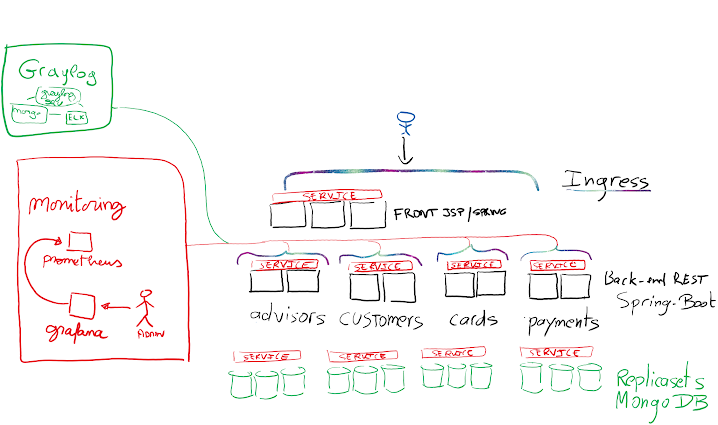 Graylog
graylog
mongo
ELK
monitoring
prometheus
grafana
ADMIN
Ingress
SERVICE
FRONT JSP/SPRING
SERVICE
SERVICE
SERVICE
SERVICE
Back-end REST
Spring-Boot
advisors
customers
cards
payments
SERVICE
SERVICE
SERVICE
SERVICE
Replicasets
MongoDB